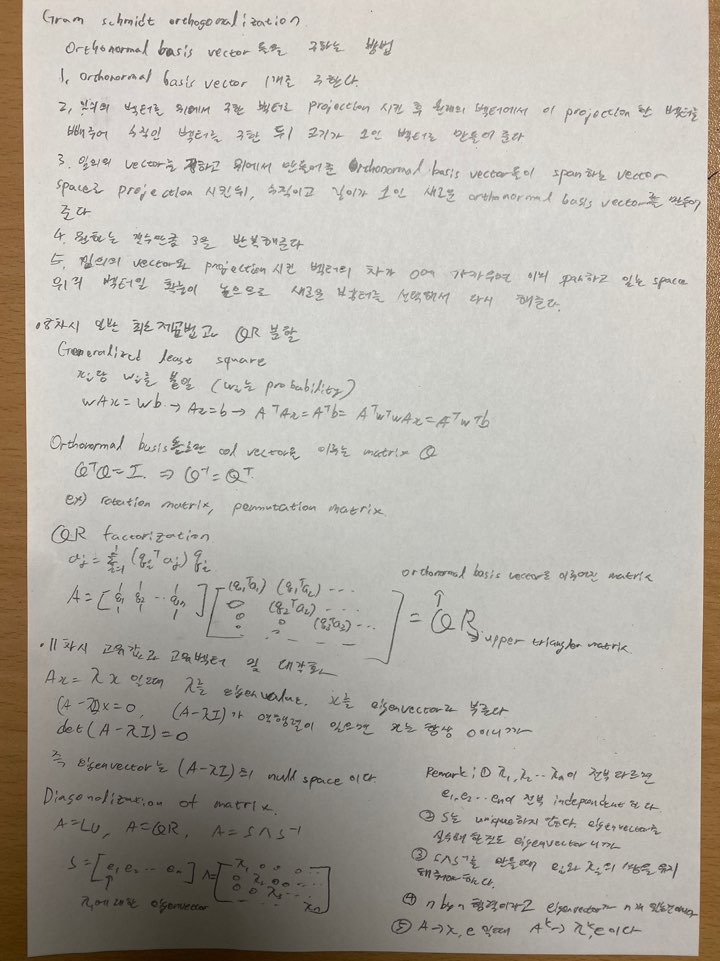 Gram schmidt orthogonalization.
Orthonormal basis vector 들을 구하는 방법
1. orthonormal basis vector 1개를 구한다.
2. 임의의 벡터를 위에서 구한 벡터로 projection 시킨 후 원래의 벡터에서 이 projection 한 벡터를
빼주어 수직인 벡터를 구한 뒤 크기가 1인 벡터로 만들어 준다
3. 임의의 vector를 구하고 위에서 만들어준 orthonormal basis vector들이 span하는 vector
space로 projection 시킨뒤, 수직이고 길이가 1인 새로운 orthonormal basis vector를 만들어
준다
4. 원하는 갯수만큼 3을 반복해준다
5. 임의의 vector와 projection 시킨 벡터의 차가 0에 가까우면 이미 하고 있는 space
위의 벡터일 확률이 높으므로 새로운 벡터를 선택해서 다시 해준다.
차시 일반 최소제곱법과 QR 분할
Generalized least square
를 붙임 (wi는 probability)
wAx = wb → Ax = b → AᵀAx = Aᵀb = AᵀwᵀwAx = Aᵀwᵀb
Orthonormal basis col vector을 이루는 matrix Q
QᵀQ = I. ⇒ Q⁻¹ = Qᵀ
ex) rotation matrix, permutation matrix.
QR factorization
aj = Σ (qiᵀaj) qi
orthonormal basis vector로 이루어진 matrix
A = [q1 q2 ⋯ qn] [(q1ᵀa1) (q1ᵀa2) ⋯
0 (q2ᵀa2) ⋯
0 0 (q3ᵀa3) ⋯] = QR
upper triangular matrix.
• 11차시 고유값과 고유벡터 및 대각화
Ax = λx 일때 λ를 eigenvalue, x를 eigenvector라 부른다
(A - λI)x = 0, (A - λI)가 역행렬이 있으면 x는 항상 0이니까
det(A - λI) = 0
즉 eigenvector는 (A-λI)의 null space 이다
Diagonalization of matrix.
A = LU, A = QR, A = SΛS⁻¹
S = [e1 e2 ⋯ en] Λ = [λ1 0 0 ⋯
0 λ2 0 ⋯
0 0 λ3 ⋯
λn]
λ1에 대한 eigenvector
Remark; ① λ1, λ2 ⋯ λn이 전부 다르면
e1, e2 ⋯ en이 전부 independent 하다
② S는 unique하지 않다. eigenvector를
실수배 한것도 eigenvector니까
③ SΛS⁻¹를 만들때 ei와 λi의 순서를 유지
해줘야한다.
④ n by n 행렬이라고 eigenvector가 n개
⑤ A → λ, e 일때 Aᵏ → λᵏ, e이다